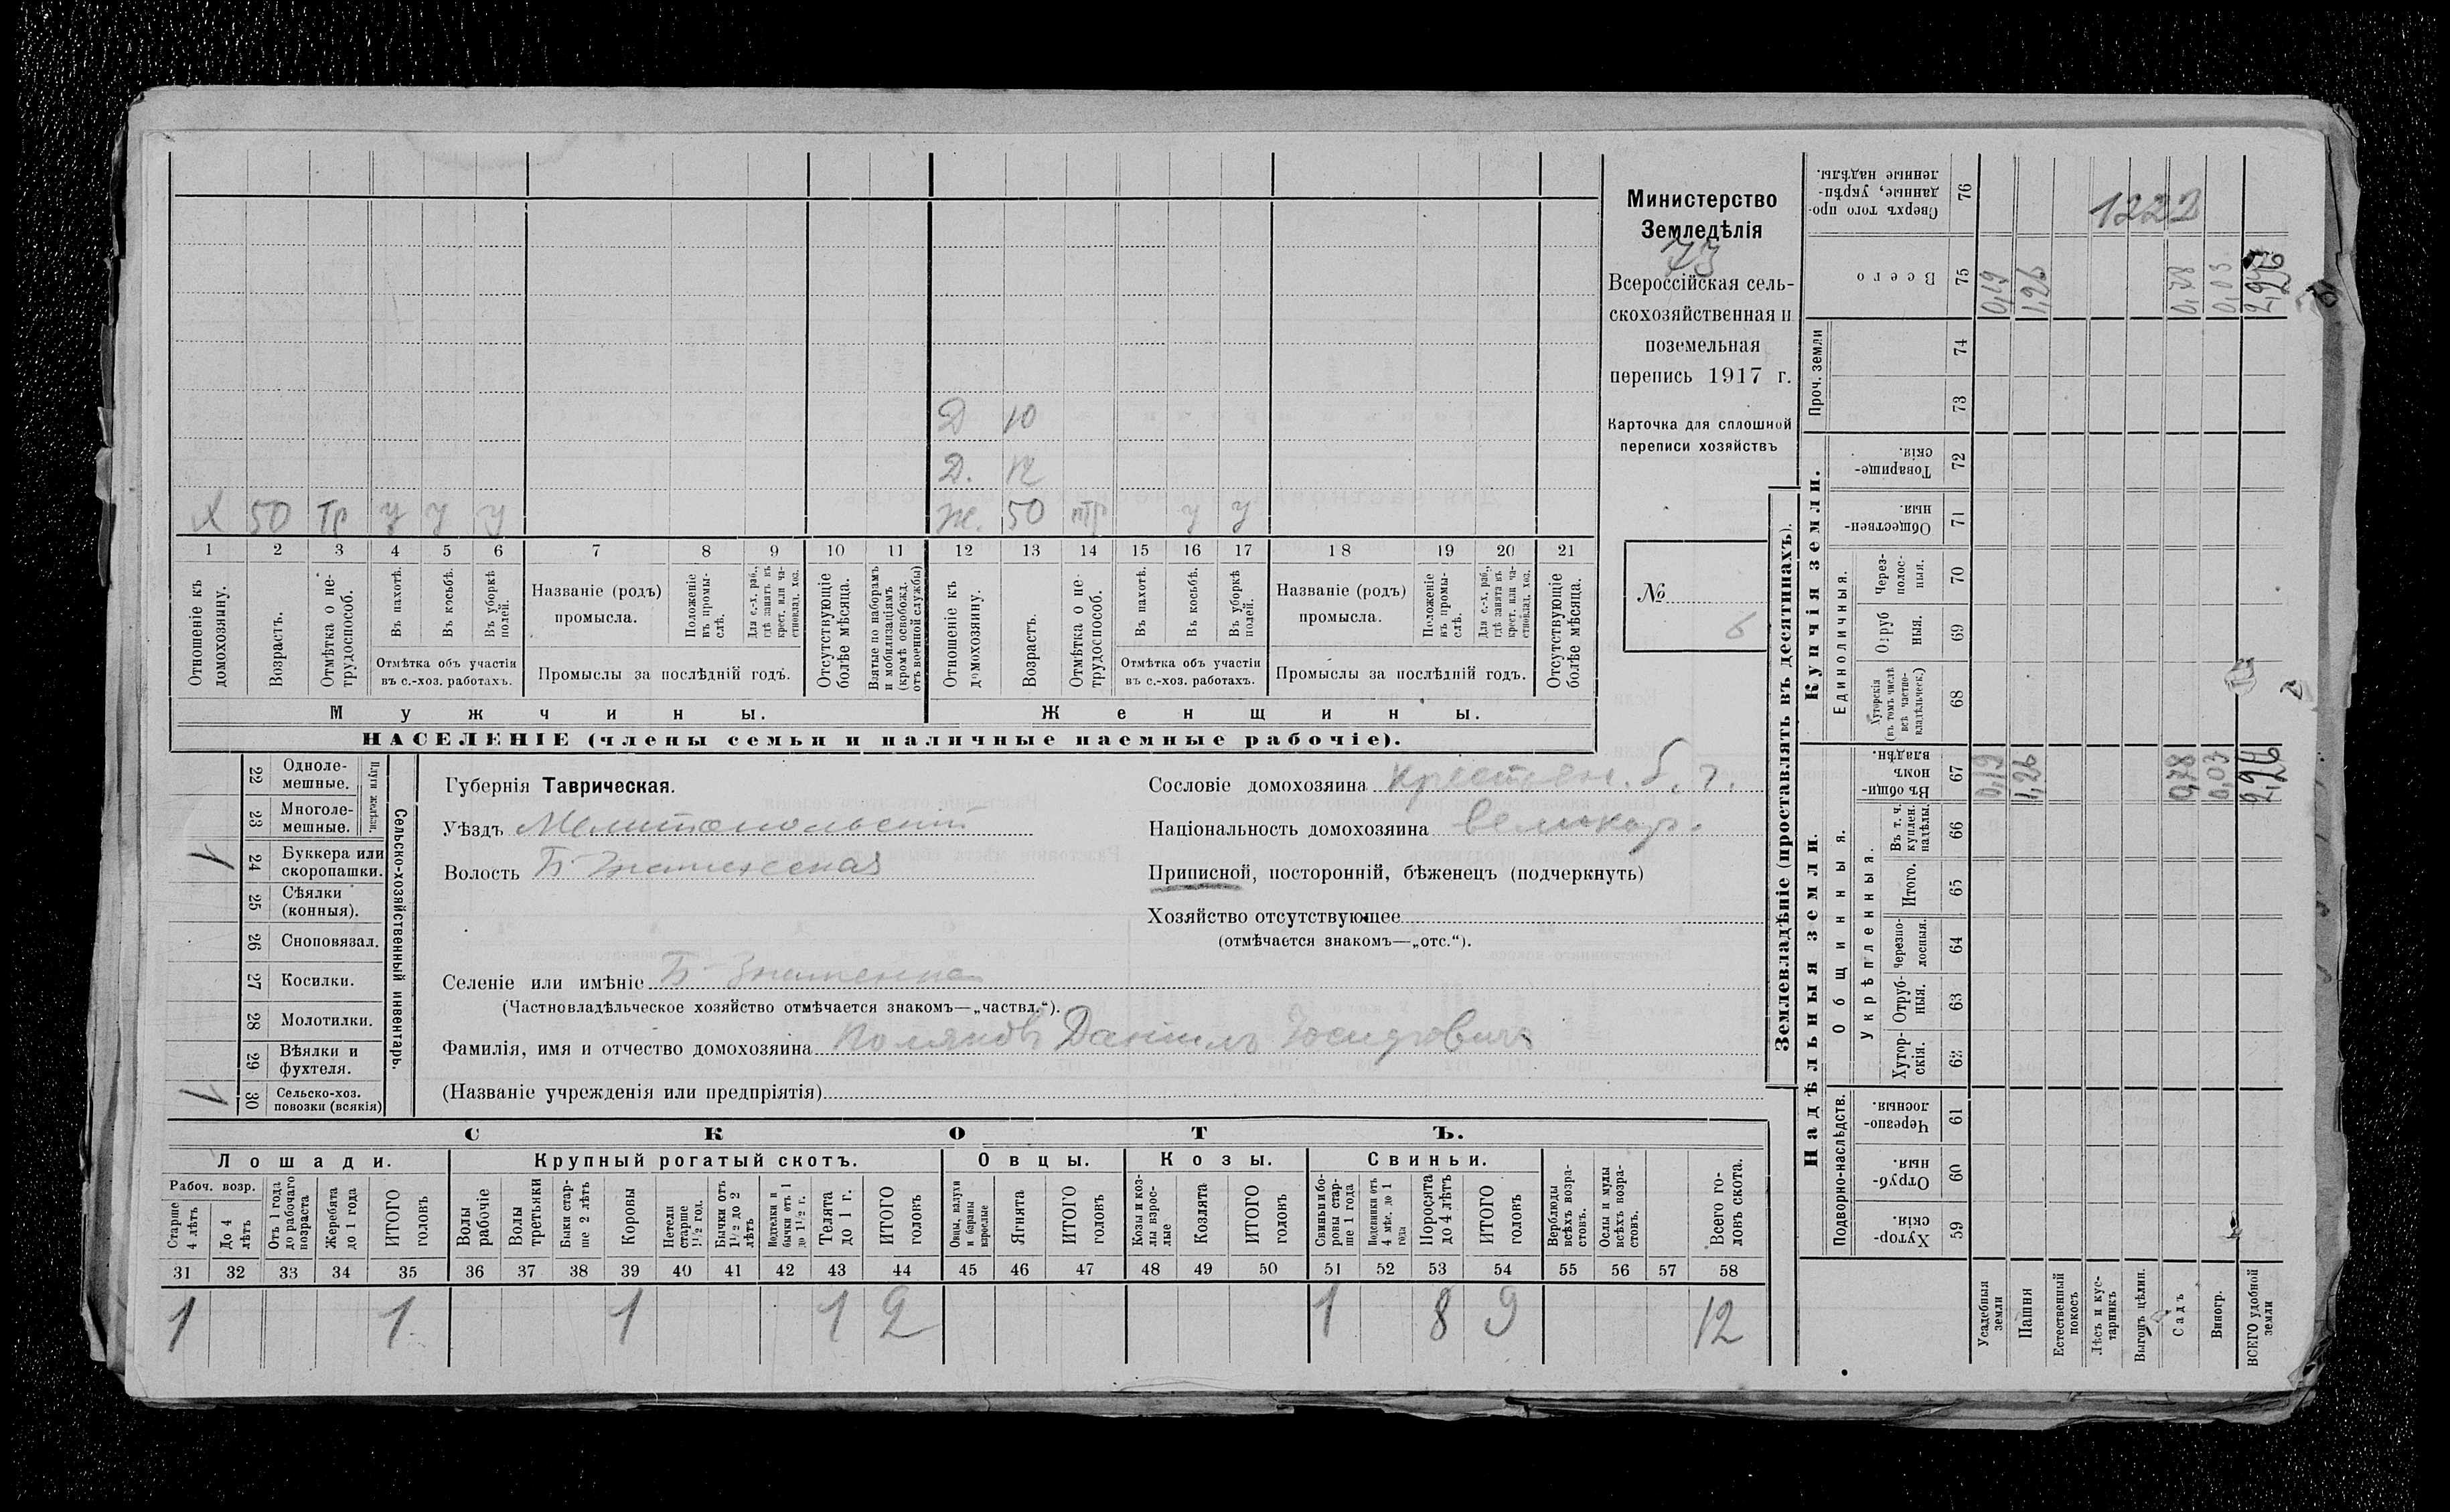 Д 10
Д. 12
Х 50 Тр у у у Ж. 50 тр у у
1 2 3 4 5 6 7 8 9 10 11 12 13 14 15 16 17 18 19 20 21
Отношеніе къ домохозяину.
Возрастъ.
Отмѣтка о не-
трудоспособ.
Въ пахотѣ.
Въ косьбѣ.
Въ уборкѣ
полей.
Отмѣтка объ участіи
въ с.-хоз. работахъ.
Названіе (родъ)
промысла.
Положеніе
въ промы-
слѣ.
Для с.-х. раб.,
гдѣ занятъ въ
крест. или ча-
стновлад. хоз.
Промыслы за послѣдній годъ.
Отсутствующіе
болѣе мѣсяца.
Взятые по наборамъ
и мобилизаціямъ
(кромѣ освобожд.
отъ военной службы)
Отношеніе къ
домохозяину.
Возрастъ.
Отмѣтка о не-
трудоспособ.
Въ пахотѣ.
Въ косьбѣ.
Въ уборкѣ
полей.
Отмѣтка объ участіи
въ с.-хоз. работахъ.
Названіе (родъ)
промысла.
Положеніе
въ промы-
слѣ.
Для с.-х. раб.,
гдѣ занята въ
крест. или ча-
стновлад. хоз.
Промыслы за послѣдній годъ.
Отсутствующіе
болѣе мѣсяца.
Мужчины.
Женщины.
НАСЕЛЕНІЕ (члены семьи и наличные наемные рабочіе).
Министерство
Земледѣлія
73
Всероссійская сель-
скохозяйственная и
поземельная
перепись 1917 г.
Карточка для сплошной
переписи хозяйствъ
№
6
22 Одноле-
мешные.
23 Многоле-
мешные.
Плуги желѣзн.
24 Буккера или
скоропашки.
1
25 Сѣялки
(конныя).
26 Сноповязал.
27 Косилки.
28 Молотилки.
29 Вѣялки и
фухтеля.
30 Сельско-хоз.
повозки (всякія)
1
Сельско-хозяйственный инвентарь.
Губернія Таврическая.
Уѣздъ Мелитопольскій
Волость Б-Знаменская
Сословіе домохозяина Крестьян.
Національность домохозяина великор.
Приписной, посторонній, бѣженецъ (подчеркнуть)
Хозяйство отсутствующее
(отмѣчается знакомъ—„отс.“).
Селеніе или имѣніе Б-Знаменка
(Частновладѣльческое хозяйство отмѣчается знакомъ—„частвл.“).
Фамилія, имя и отчество домохозяина Поляковъ Даніилъ
(Названіе учрежденія или предпріятія)
СКОТЪ.
Лошади. Крупный рогатый скотъ. Овцы. Козы. Свиньи.
Рабоч. возр.
Старше
4 лѣтъ
До 4
лѣтъ
Отъ 1 года
до рабочаго
возраста
Жеребята
до 1 года
ИТОГО
головъ
Волы
рабочіе
Волы
третьяки
Быки стар-
ше 2 лѣтъ
Коровы
Нетели
старше
1½ год.
Бычки отъ
1½ до 2
лѣтъ
Нетелки и
бычки отъ 1
до 1½ г.
Телята
до 1 г.
ИТОГО
головъ
Овцы, валухи
и бараны
взрослые
Ягнята
ИТОГО
головъ
Козы и коз-
лы взрос-
лые
Козлята
ИТОГО
головъ
Свиньи и бо-
ровы стар-
ше 1 года
Подсвинки отъ
4 мѣс. до 1
года
Поросята
до 4 лѣтъ
ИТОГО
головъ
Верблюды
всѣхъ возра-
стовъ.
Ослы и мулы
всѣхъ возра-
стовъ.
Всего го-
ловъ скота.
31 32 33 34 35 36 37 38 39 40 41 42 43 44 45 46 47 48 49 50 51 52 53 54 55 56 57 58
1 1 1 1 2 1 8 9 12
Землевладѣніе (проставлять въ десятинахъ).
Надѣльныя земли.
Купчія земли.
Проч. земли
Подворно-наслѣдств.
Общинныя.
Укрѣпленныя.
Единоличныя.
Хутор-
скія. 59
Отруб-
ныя. 60
Черезпо-
лосныя. 61
Хутор-
скія. 62
Отруб-
ныя. 63
Черезпо-
лосныя. 64
Итого. 65
Въ т. ч.
куплен.
надѣлы. 66
Въ общи-
номъ
владѣн. 67
Хуторскія
(въ томъ числѣ
всѣ частно-
владѣльческ.) 68
Отруб
ныя. 69
Через-
полос-
ныя. 70
Обществен-
ныя. 71
Товарище-
скія. 72
73
74
Всего 75
Сверхъ того про-
данные, укрѣп-
ленные надѣлы. 76
Усадебныя
земли
0,19 0,19
Пашня
1,26 1,26
Естественный
покосъ
Лѣсъ и кус-
тарникъ
Выгонъ цѣлин.
Садъ
0,78
Виногр.
0,03 0,03
ВСЕГО удобной
земли
2,26